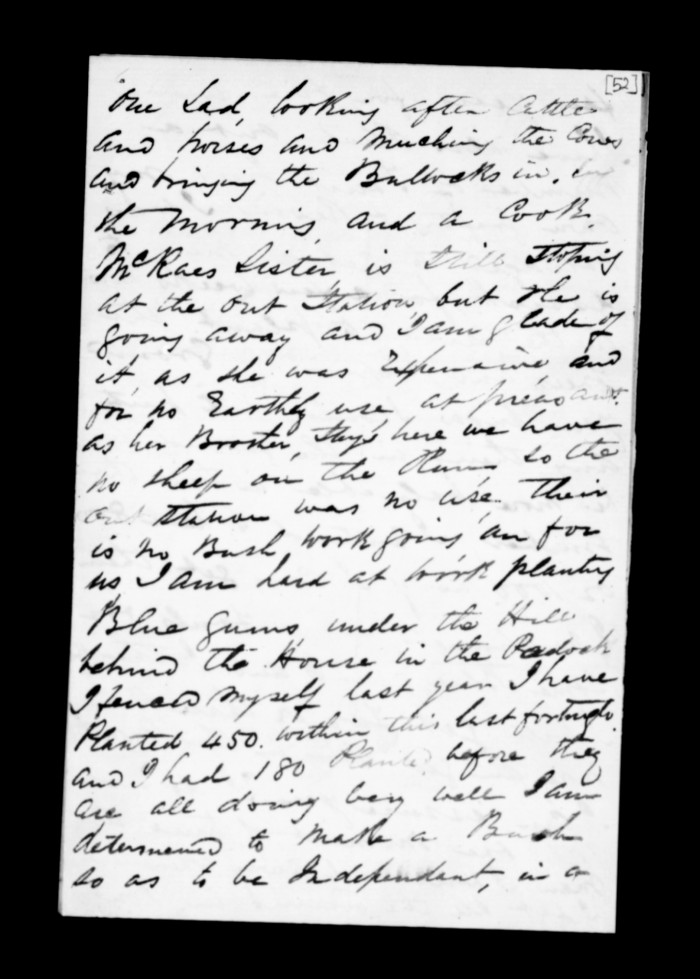 [52]
One Lad, looking after Cattle
and horses and Muching the Cows
and bringing the Bullocks in. In
the Morning, and a Cook.
McRaes Sister, is Still Stoping
at the Out Station, but She is
going away and I am glade of
it, as she was Expensive, and
for no Earthly use at preasant.
as her Brother, Stays here we have
no sheep on the Run so the
out station was no use. Their
is no Bush work going an for
us I am hard at work planting
Blue gums, under the Hill
behind the House in the Padock
I fenced Myself last year I have
Planted 450. within this last fortnight.
and I had 180 Planted before they
are all doing very well I am
determened to Make a Bush
so as to be Independant, in a